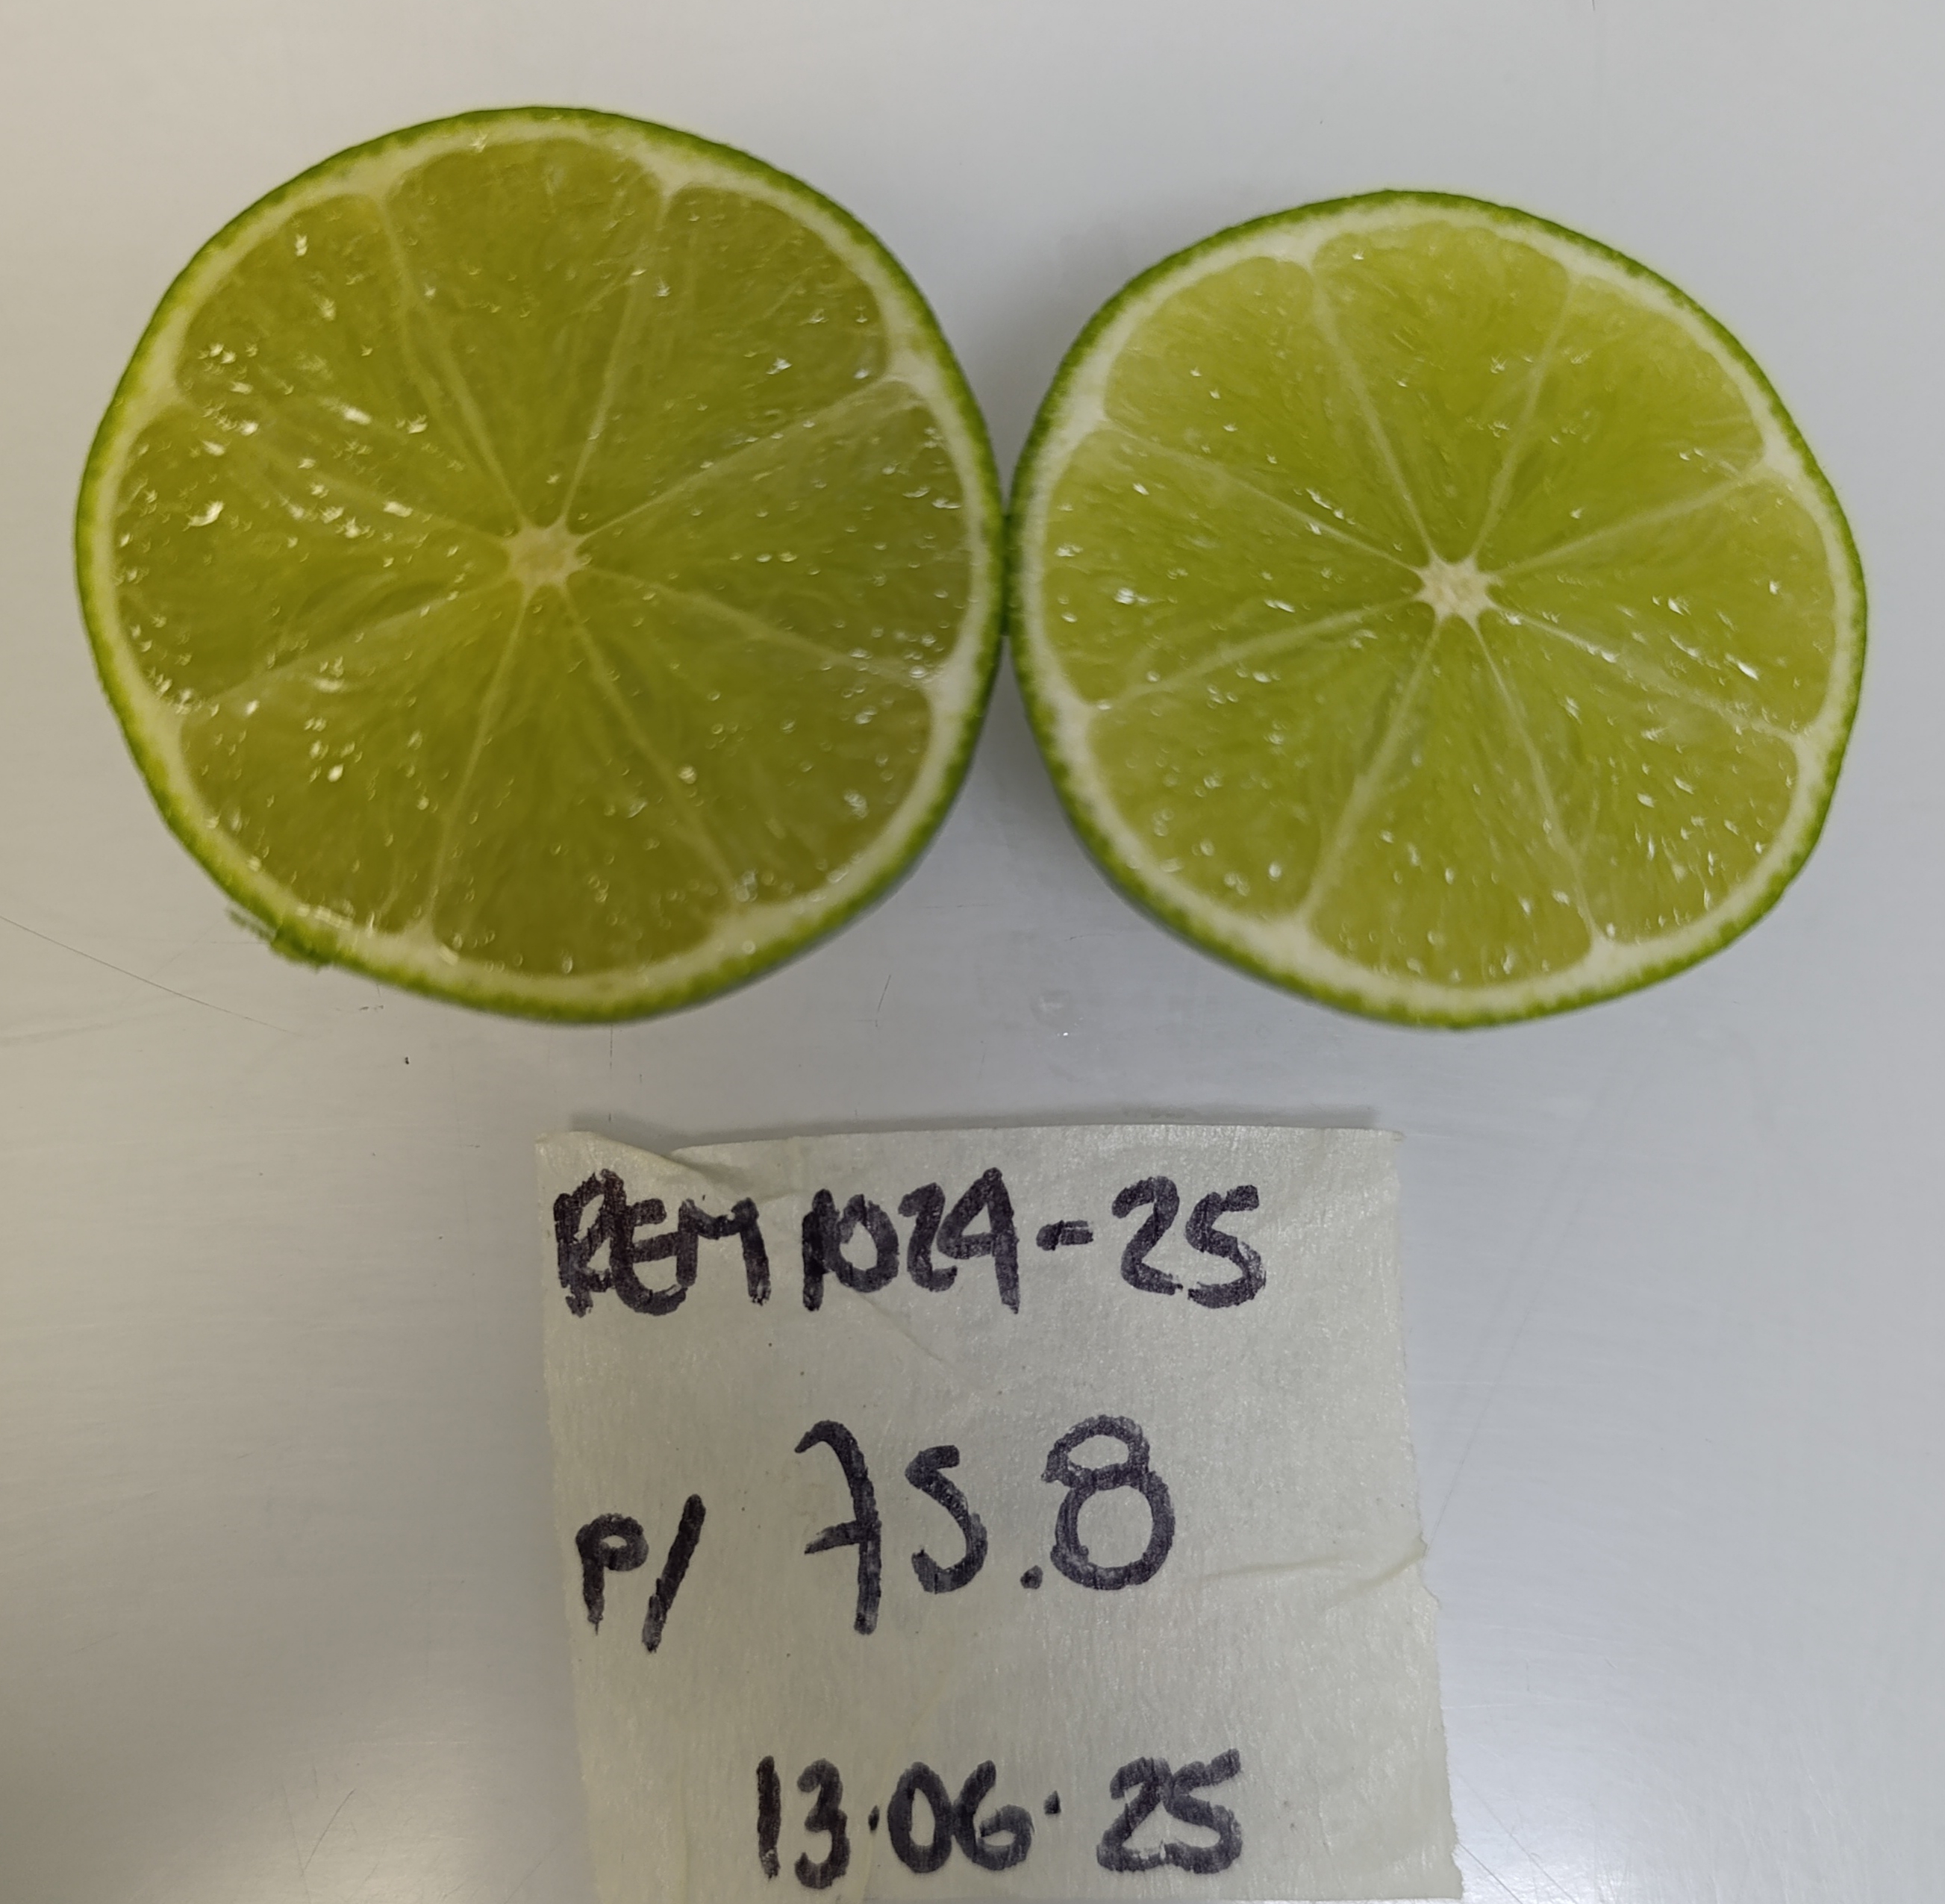 REM 1024-25
P/ 75.8
13.06.25